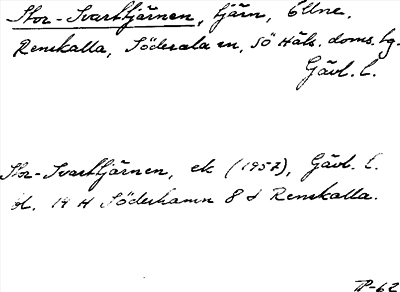 Stor-Svarttjärnen, tjärn, Ellne.
Renskalla, Söderala sn, Sö Häls. doms. hg.
Gävl. l.
Stor-Svarttjärnen, ek (1957), Gävl. l.
bl. 14 H Söderhamn 8 d Renskalla.
P-62